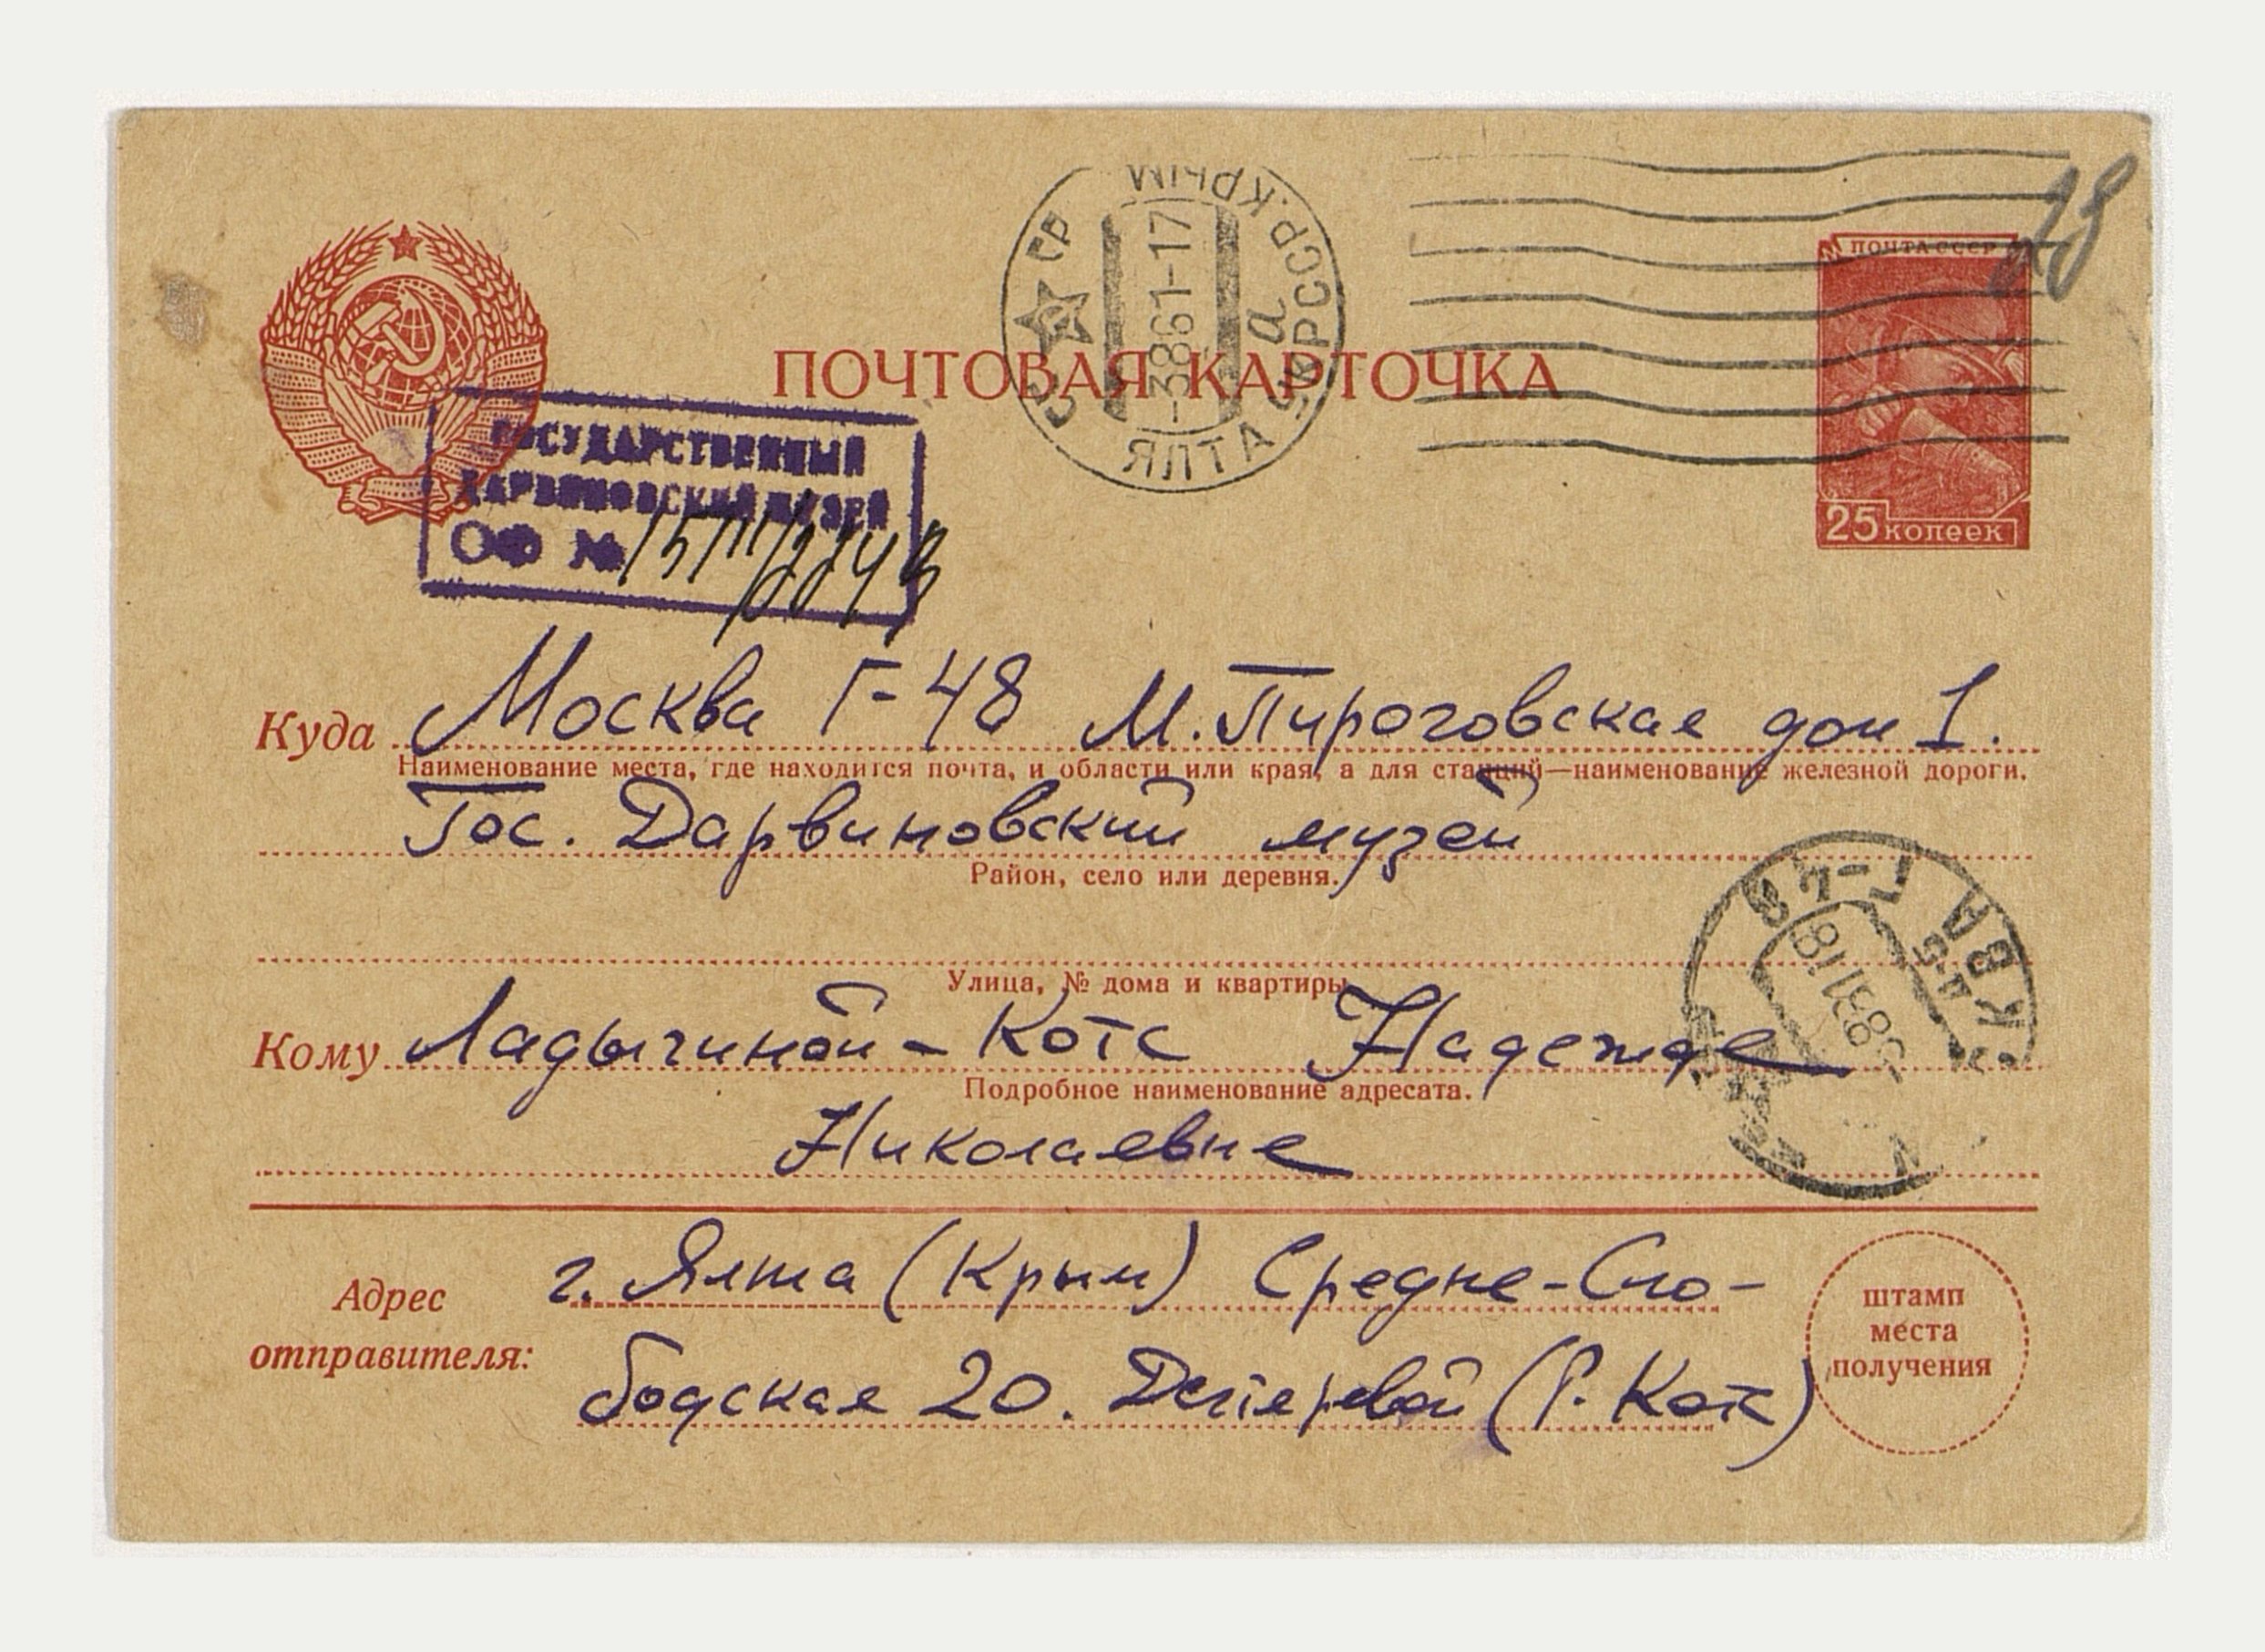 18
ПОЧТА СССР
25 копеек
СССР
ЯЛТА УКР ССР. КРЫМ
а
-3861-17
ПОЧТОВАЯ КАРТОЧКА
ГОСУДАРСТВЕННЫЙ
ДАРВИНОВСКИЙ МУЗЕЙ
ОФ №
Куда Москва Г-48 М. Пироговская дом 1.
Наименование места, где находится почта, и области или края, а для станций—наименование железной дороги.
Гос. Дарвиновский музей
Район, село или деревня.
Улица, № дома и квартиры
Кому Ладыгиной-Котс Надежде
Подробное наименование адресата.
Николаевне
Г-48
Адрес отправителя:
г. Ялта (Крым) Средне-Сло-
бодская 20. (Р. Котс)
штамп
места
получения